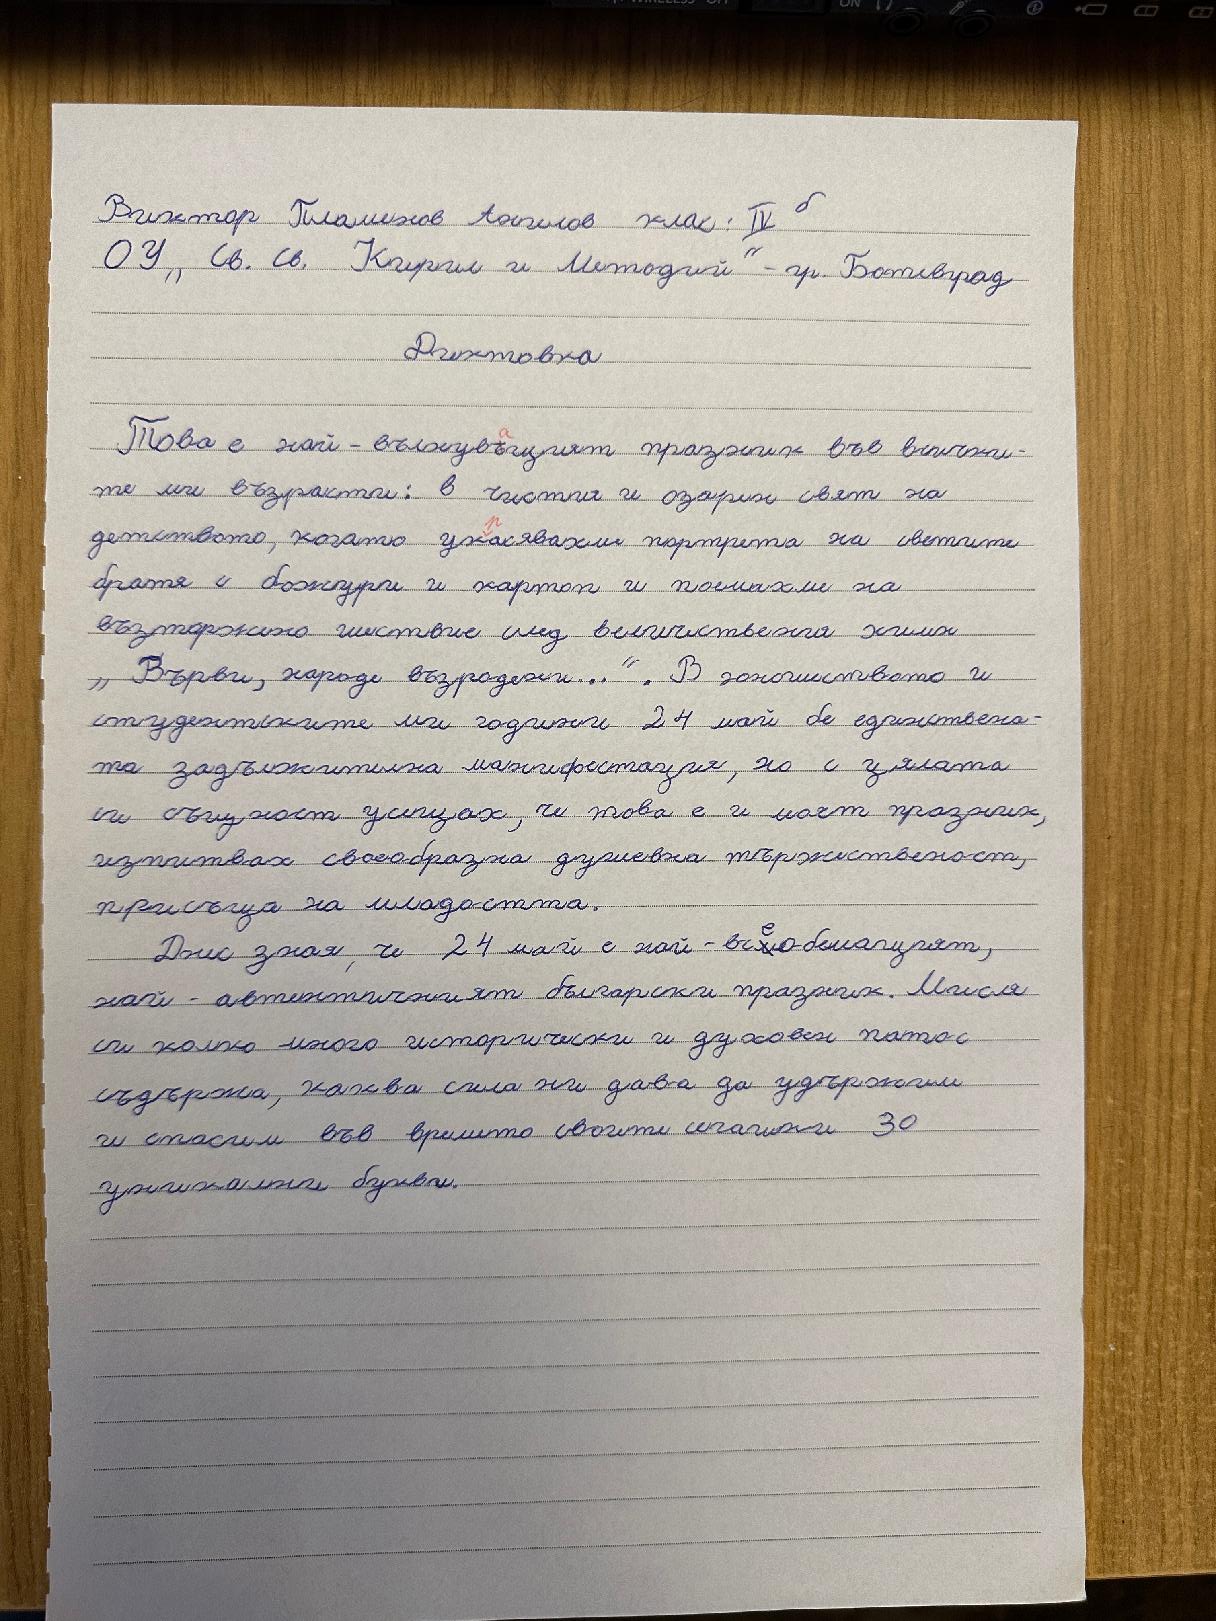 WIRELESS OFF
ON
Виктор Пламенов Ангелов клас: IV б
ОУ „Св. Св. Кирил и Методий“ - гр. Ботевград
Диктовка
Това е най - вълнуващият празник във всички-
те ми възрасти: в чистия и озарен свят на
детството, когато украсявахме портрета на светите
братя с божури и картон и поемахме на
възторжено шествие след величествения химн
„Върви, народе възродени...“. В юношеството и
студентските ми години 24 май бе единствена-
та задължителна манифестация, но с цялата
си същност усещах, че това е и моят празник,
изпитвах своеобразна душевна тържественост,
присъща на младостта.
Днес зная, че 24 май е най - всеобемащият,
най - автентичният български празник. Мисля
си колко много исторически и духовен патос
съдържа, каква сила ни дава да удържим
и спасим във времето своите сегашни 30
уникални букви.